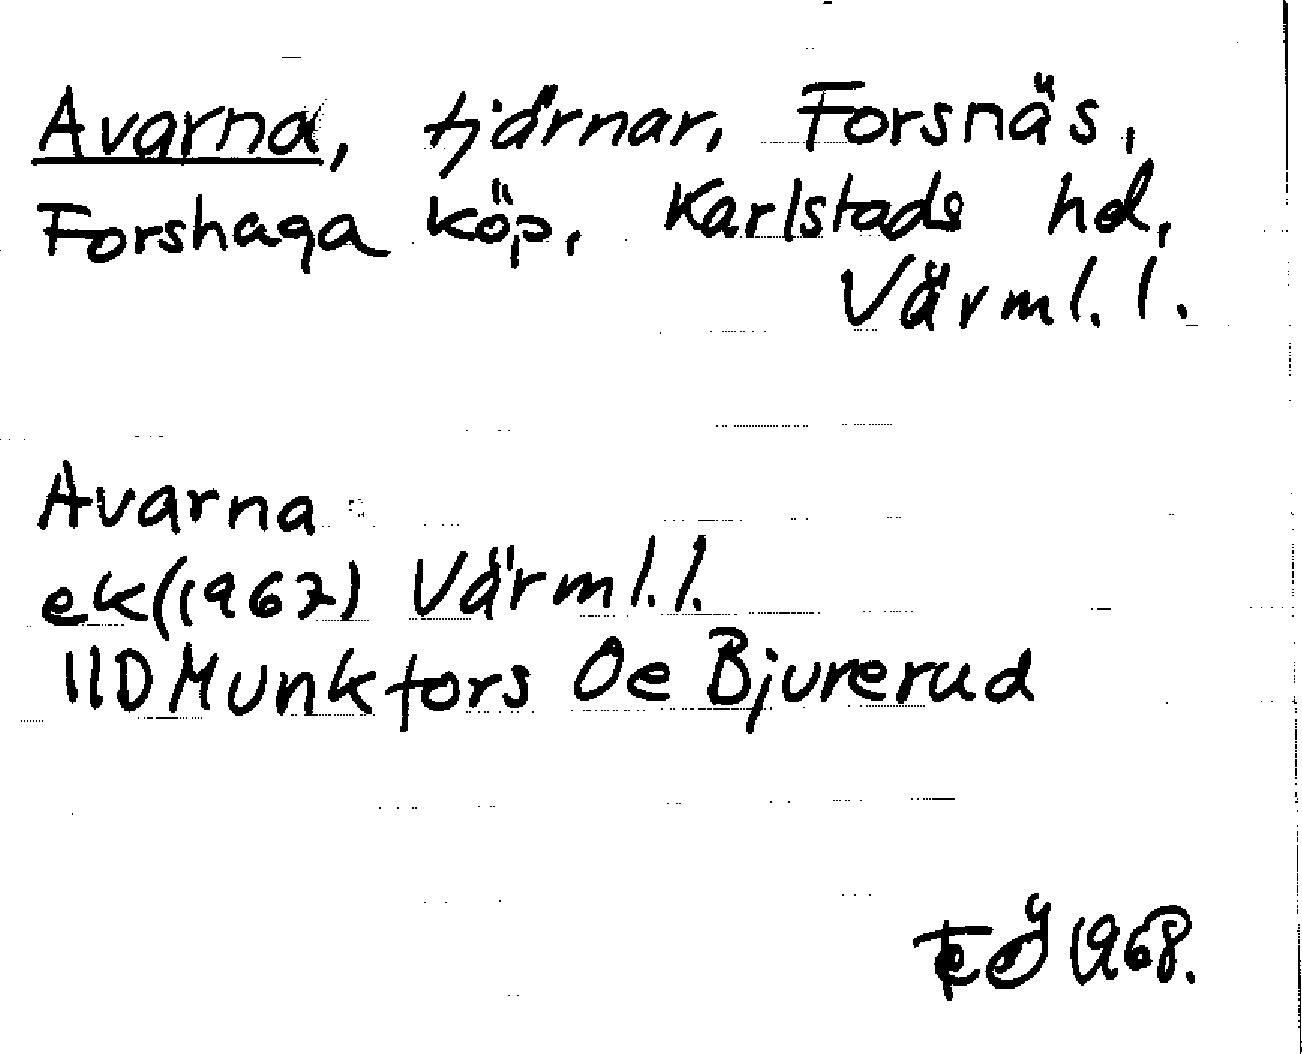 Avarna, tjärnar, Forsnäs,
Forshaga köp, Karlstads hd,
Värml. l.
Avarna
ek(1967) Värml. l.
11D Munkfors Oe Bjurerud
1968.